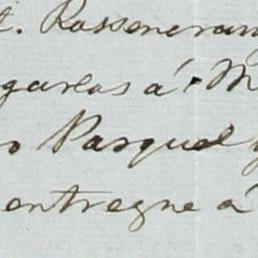 t. Rosseneran
garlas á M
o Pasqual y
entregue á